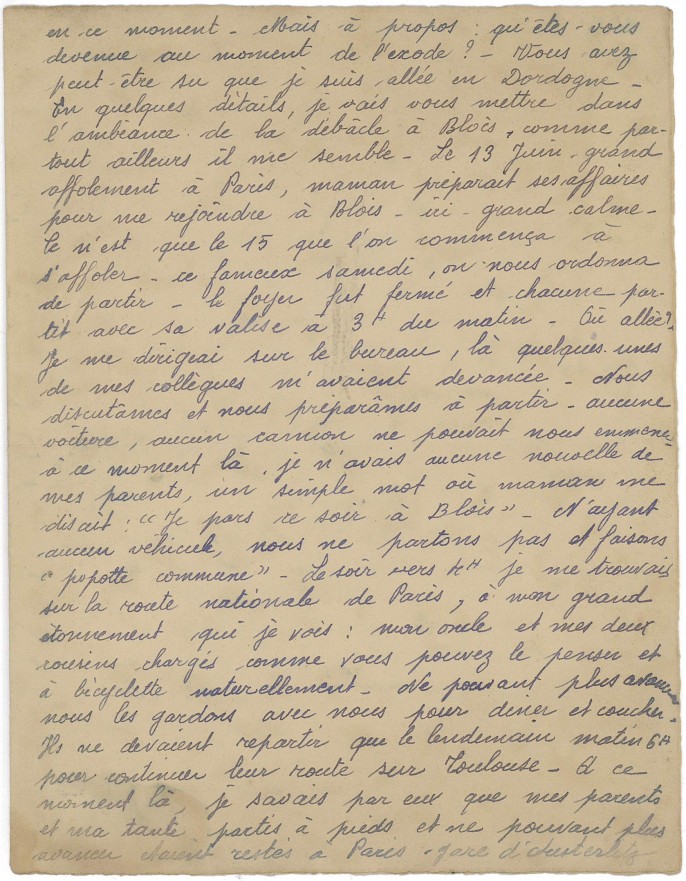 en ce moment - Mais à propos : qu'êtes-vous
devenue au moment de l'exode ? - Vous avez
peut-être su que je suis allée en Dordogne -
En quelques détails, je vais vous mettre dans
l'ambiance de la débâcle à Blois, comme par-
tout ailleurs il me semble - Le 13 Juin - grand
affolement à Paris, maman préparait ses affaires
pour me rejoindre à Blois - ici - grand calme -
Ce n'est que le 15 que l'on commença à
s'affoler - ce fameux samedi, on nous ordonna
de partir - le foyer fut fermé et chacune par-
tit avec sa valise à 3H du matin - Où aller ?
Je me dirigeai sur le bureau, là quelques-unes
de mes collègues m'avaient devancée - Nous
discutâmes et nous préparâmes à partir - aucune
voiture, aucun camion ne pouvait nous emmener
à ce moment là, je n'avais aucune nouvelle de
mes parents, un simple mot où maman me
disait : "Je pars ce soir à Blois" - N'ayant
aucun véhicule, nous ne partons pas et faisons
"popotte commune" - Le soir vers 4H je me trouvais
sur la route nationale de Paris, à mon grand
étonnement qui je vois : mon oncle et mes deux
cousins chargés comme vous pouvez le penser et
à bicyclette naturellement - Ne pouvant plus avancer
nous les gardons avec nous pour diner et coucher -
Ils ne devaient repartir que le lendemain matin 6H
pour continuer leur route sur Toulouse - A ce
moment là, je savais par eux que mes parents
et ma tante partis à pieds et ne pouvant plus
avancer étaient restés à Paris - gare d'Austerlitz